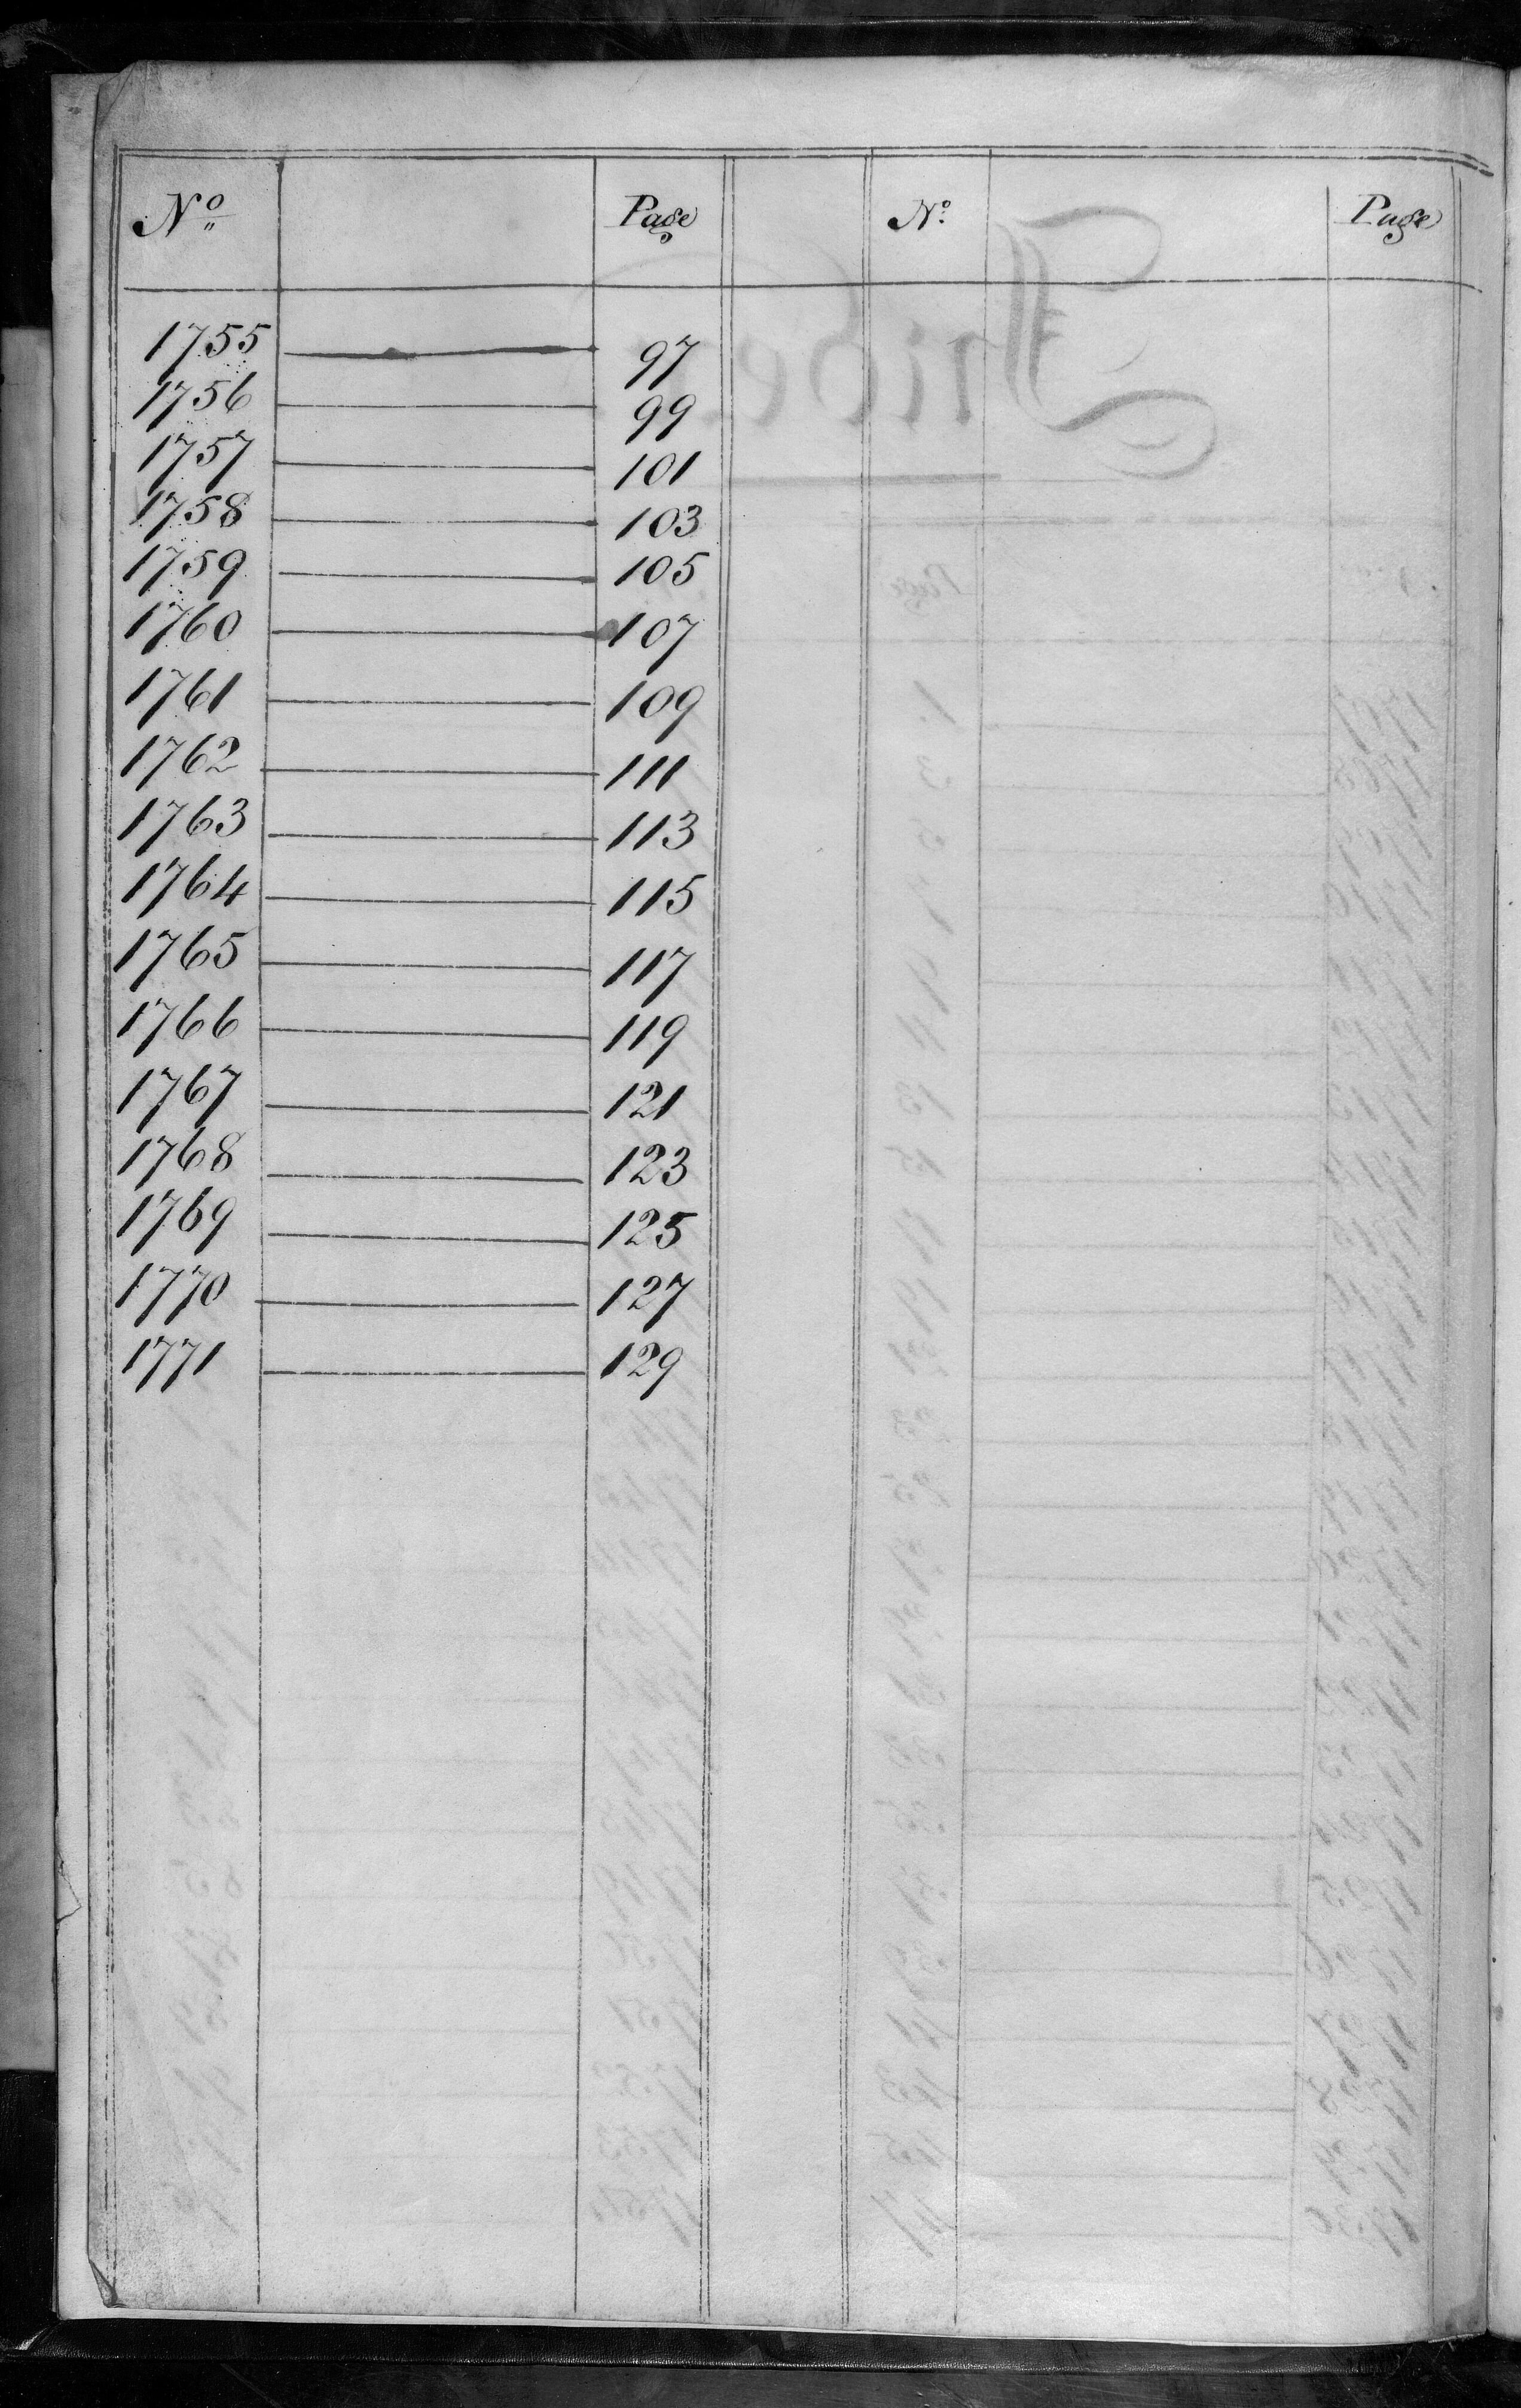 Nº Page Nº Page
1755 97
1756 99
1757 101
1758 103
1759 105
1760 107
1761 109
1762 111
1763 113
1764 115
1765 117
1766 119
1767 121
1768 123
1769 125
1770 127
1771 129